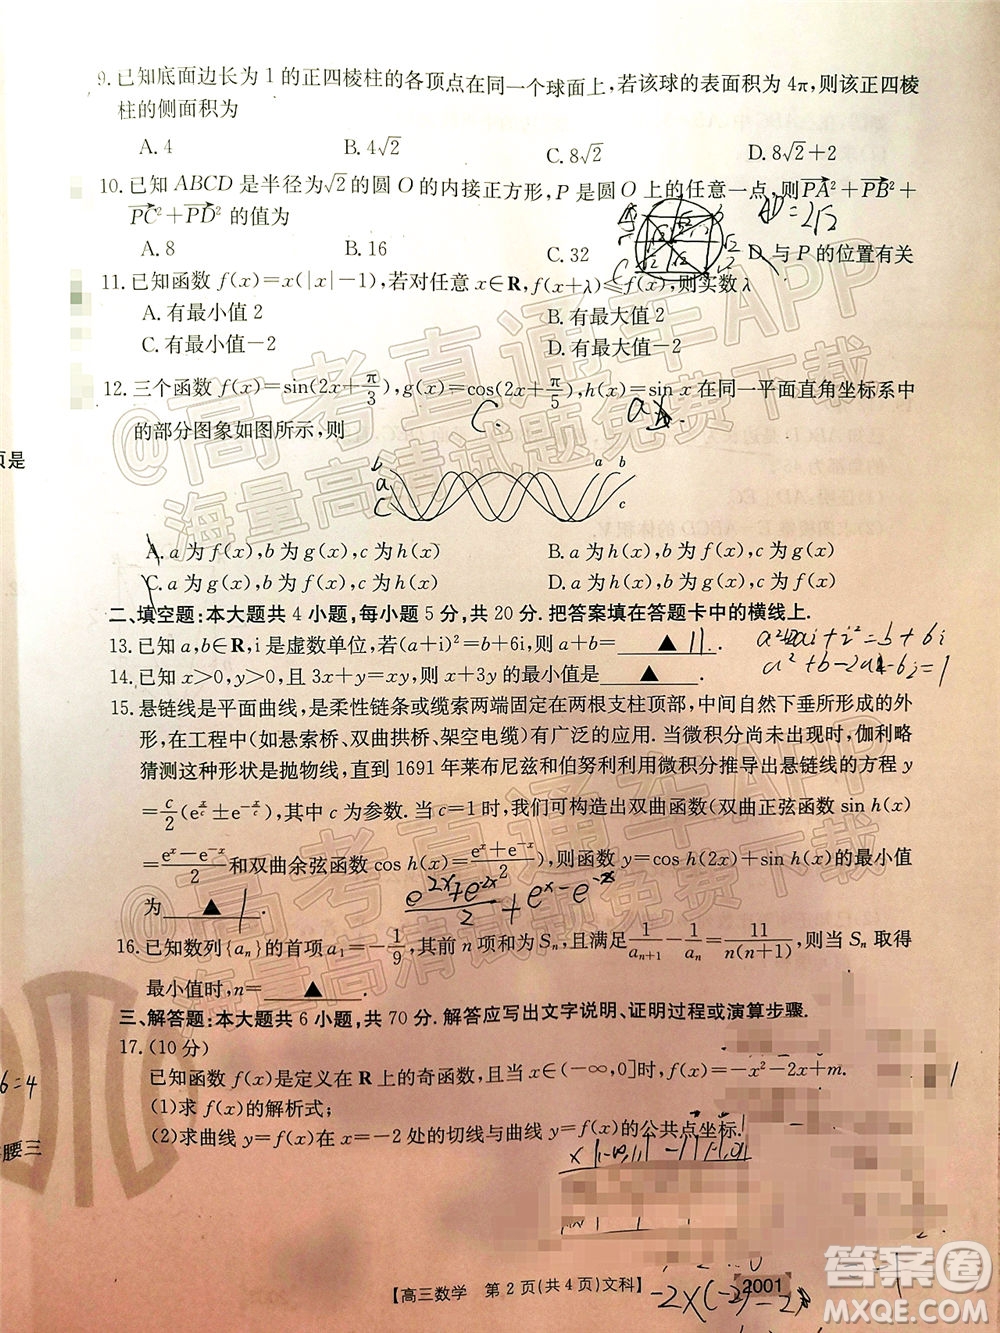 9. 已知底面边长为 1 的正四棱柱的各顶点在同一个球面上,若该球的表面积为 4π,则该正四棱
柱的侧面积为
A. 4 B. 4√2 C. 8√2 D. 8√2+2
10. 已知 ABCD 是半径为√2的圆 O 的内接正方形,P 是圆 O 上的任意一点,则PA²+PB²+
PC²+PD² 的值为
AD=2√2
A. 8 B. 16 C. 32 D. 与 P 的位置有关
11. 已知函数 f(x)=x(|x|-1),若对任意 x∈R,f(x+λ)≤f(x),则实数 λ
A. 有最小值 2 B. 有最大值 2
C. 有最小值-2 D. 有最大值-2
12. 三个函数 f(x)=sin(2x+π/3),g(x)=cos(2x+π/5),h(x)=sin x 在同一平面直角坐标系中
的部分图象如图所示,则
页是
b a b
a
c c
A. a 为 f(x),b 为 g(x),c 为 h(x) B. a 为 h(x),b 为 f(x),c 为 g(x)
C. a 为 g(x),b 为 f(x),c 为 h(x) D. a 为 h(x),b 为 g(x),c 为 f(x)
二、填空题:本大题共 4 小题,每小题 5 分,共 20 分. 把答案填在答题卡中的横线上.
13. 已知 a,b∈R,i 是虚数单位,若(a+i)²=b+6i,则 a+b= ▲ 11 .
14. 已知 x>0,y>0,且 3x+y=xy,则 x+3y 的最小值是 ▲ .
15. 悬链线是平面曲线,是柔性链条或缆索两端固定在两根支柱顶部,中间自然下垂所形成的外
形,在工程中(如悬索桥、双曲拱桥、架空电缆)有广泛的应用. 当微积分尚未出现时,伽利略
猜测这种形状是抛物线,直到 1691 年莱布尼兹和伯努利利用微积分推导出悬链线的方程 y
=c/2(e^(x/c)±e^(-x/c)),其中 c 为参数. 当 c=1 时,我们可构造出双曲函数(双曲正弦函数 sin h(x)
=(e^x-e^(-x))/2 和双曲余弦函数 cos h(x)=(e^x+e^(-x))/2),则函数 y=cos h(2x)+sin h(x)的最小值
为 ▲ .
16. 已知数列{aₙ}的首项 a₁=-1/9,其前 n 项和为 Sₙ,且满足1/aₙ₊₁-1/aₙ=11/(n(n+1)),则 Sₙ 取得
最小值时,n= ▲ .
三、解答题:本大题共 6 小题,共 70 分. 解答应写出文字说明、证明过程或演算步骤.
17. (10 分)
6=4
已知函数 f(x)是定义在 R 上的奇函数,且当 x∈(-∞,0]时,f(x)=-x²-2x+m.
(1)求 f(x)的解析式;
(2)求曲线 y=f(x)在 x=-2 处的切线与曲线 y=f(x)的公共点坐标.
腰三
【高三数学 第 2 页(共 4 页)文科】
2001
@高考直通车APP
海量高清试题免费下载
@高考直通车APP
海量高清试题免费下载
答案圈
MXQE.COM